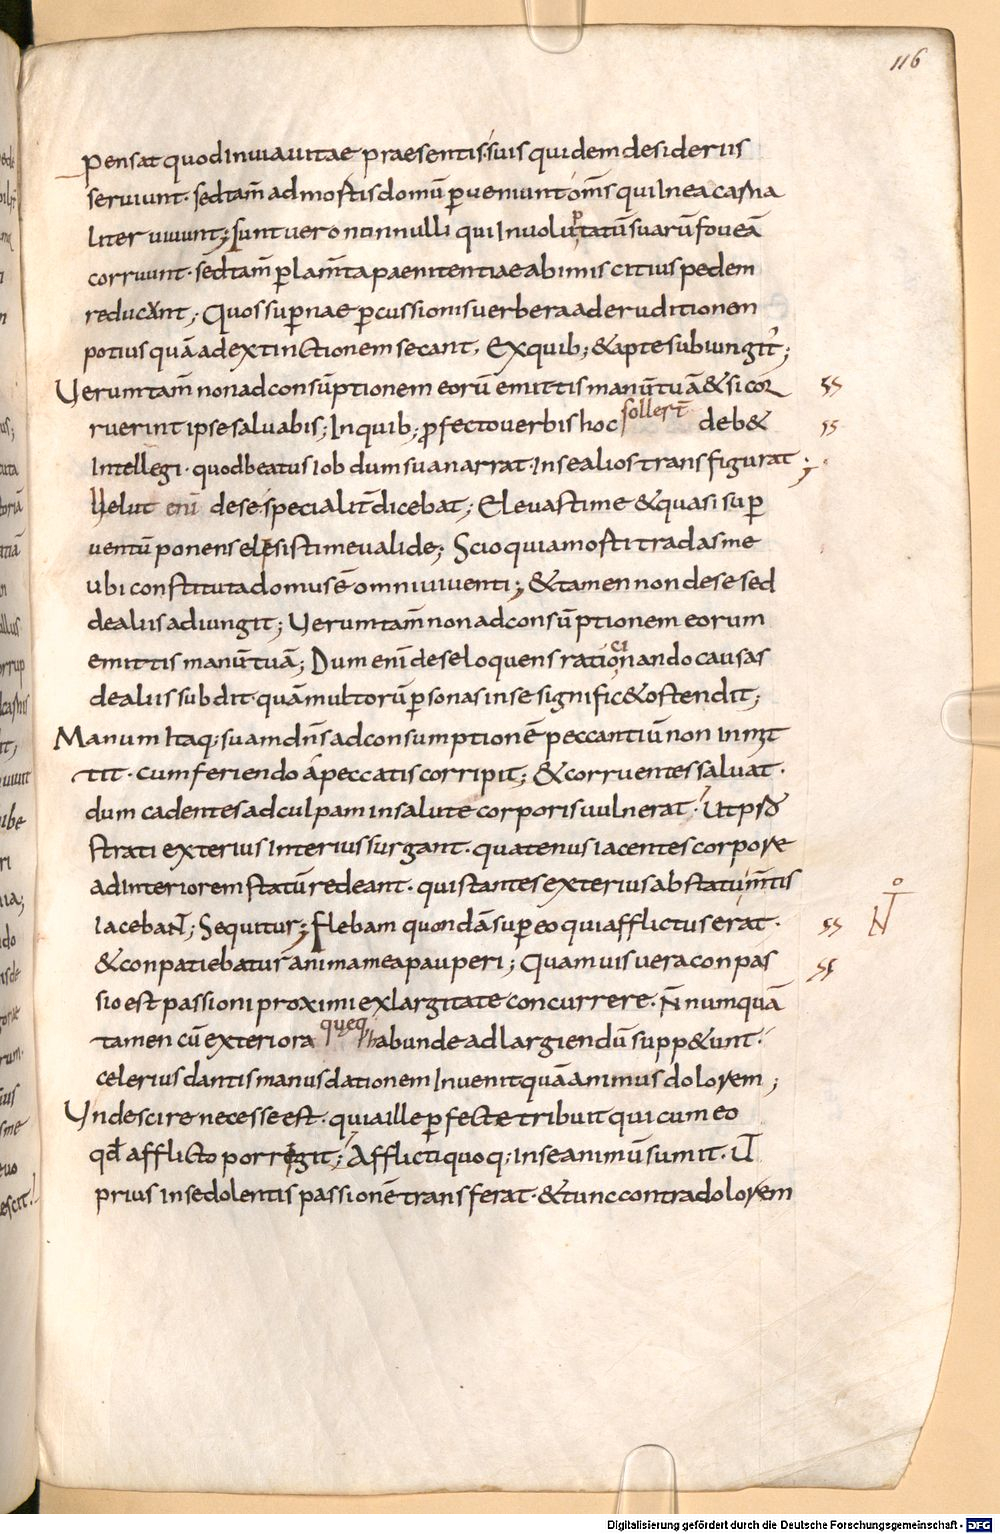 116
pensat quod in uia uitae praesentis suis quidem desideriis
seruiunt · sed tam̄ ad mortis domū ꝑueniunt om̄s qui in ea carna
liter uiuunt; sunt uero nonnulli qui In uoluptatū suarū foueā
corruunt · sed tam̄ ꝑ lam̄ta paenitentiae ab imis citius pedem
reducunt; Quos suꝑnae ꝑcussionis uerbera ad eruditionem
potius quā ad extinctionem secant. Ex quib; & apte subiungit̄;
Uerumtam̄ non ad consūptionem eorū emittis manū tuā & si cor
ruerint ipse saluabis; In quib; ꝓfecto uerbis hoc sollert̄ deb&
Intellegi · quod beatus iob dum sua narrat · In se alios transfigurat;
Uelut eni dese specialit̄ dicebat; Eleuasti me & quasi suꝑ
uentū ponens elisisti me ualide; Scio quia morti tradas me
ubi constituta domus ē omni uiuenti; & tamen non dese sed
de aliis adiungit; Uerumtam̄ non ad consūptionem eorum
emittis manū tuā; Dum enī dese loquens ratiocinando causas
de aliis subdit · quā multorū ꝑsonas in se signific& ostendit;
Manum Itaq; suam dn̄s ad consumptionē peccantiū non inmit
tit · cum feriendo a peccatis corripit; & corruentes saluat ·
dum cadentes ad culpam in salute corporis uulnerat · Ut pro
strati exterius Interius surgant · quatenus iacentes corpore
ad Interiorem statū redeant · qui stantes exterius ab statu m̄tis
Iacebant; Sequitur; Flebam quondā suꝑ eo qui afflictus erat ·
& conpatiebatur anima mea pauperi; Quamuis uera conpas
sio est passioni proximi ex largitate concurrere · N̄ numquā
tamen cū exteriora queq habunde ad largiendū supp&unt ·
celerius dantis manus dationem Inuenit quā animus dolorem;
Unde scire necesse est · quia ille ꝑfecte tribuit qui cum eo
qd̄ afflicto porrigit; Afflicti quoq; In se animū sumit · ut
prius In se dolentis passionē transferat · & tunc contra dolorem
Digitalisierung gefördert durch die Deutsche Forschungsgemeinschaft - DFG